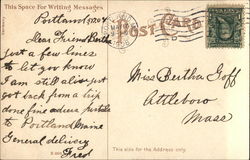 This Space For Writing Messages
POST CARD
Portland
Dear Friend Bertha
just a few lines
to let you know
I am still alive just
got back from a trip
to Portland Maine
General delivery
Fred
Miss Bertha Goff
Attleboro
Mass
This side for the Address only